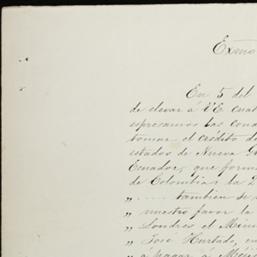 Exmo
En 5 del
de elevar á V.E. cuat
espresamos las cond
tomar el crédito d
estados de Nueva G
Ecuador, que form
de Colombia: la 2
„ ..... tambien de
„ nuestro favor la
„ Londres el Mini
„ José Hurtado, en
„ á pagar a Méji